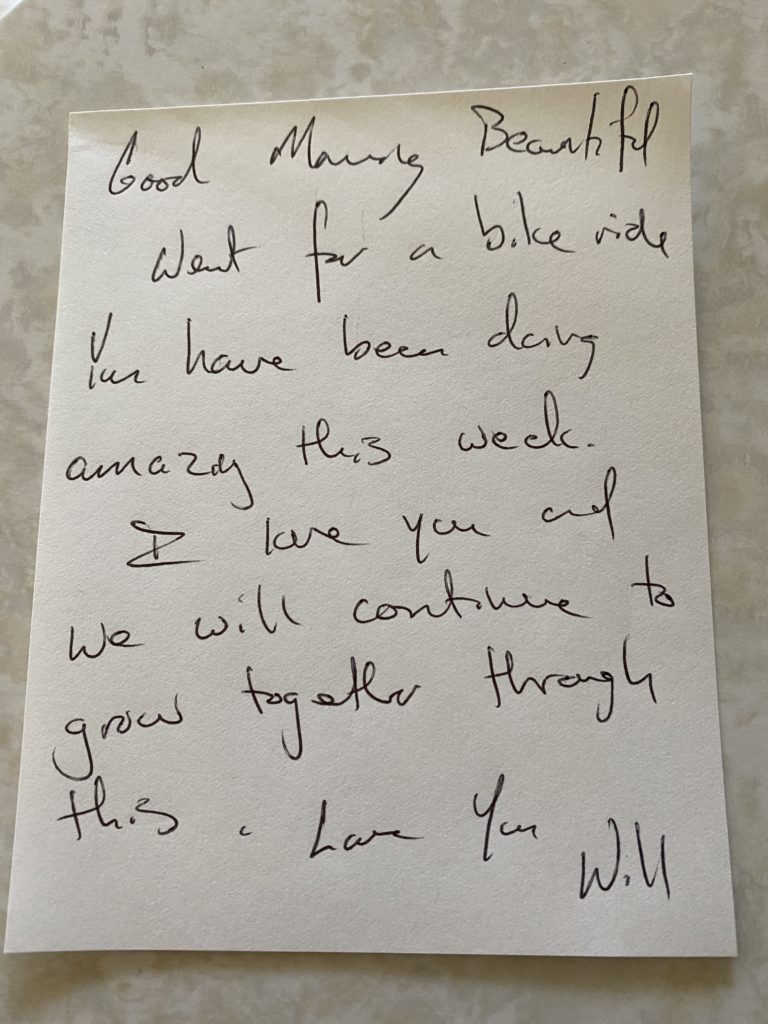 Good Morning Beautiful
Went for a bike ride
You have been doing
amazing this week.
I love you and
We will continue to
grow together through
this. Love You
Will